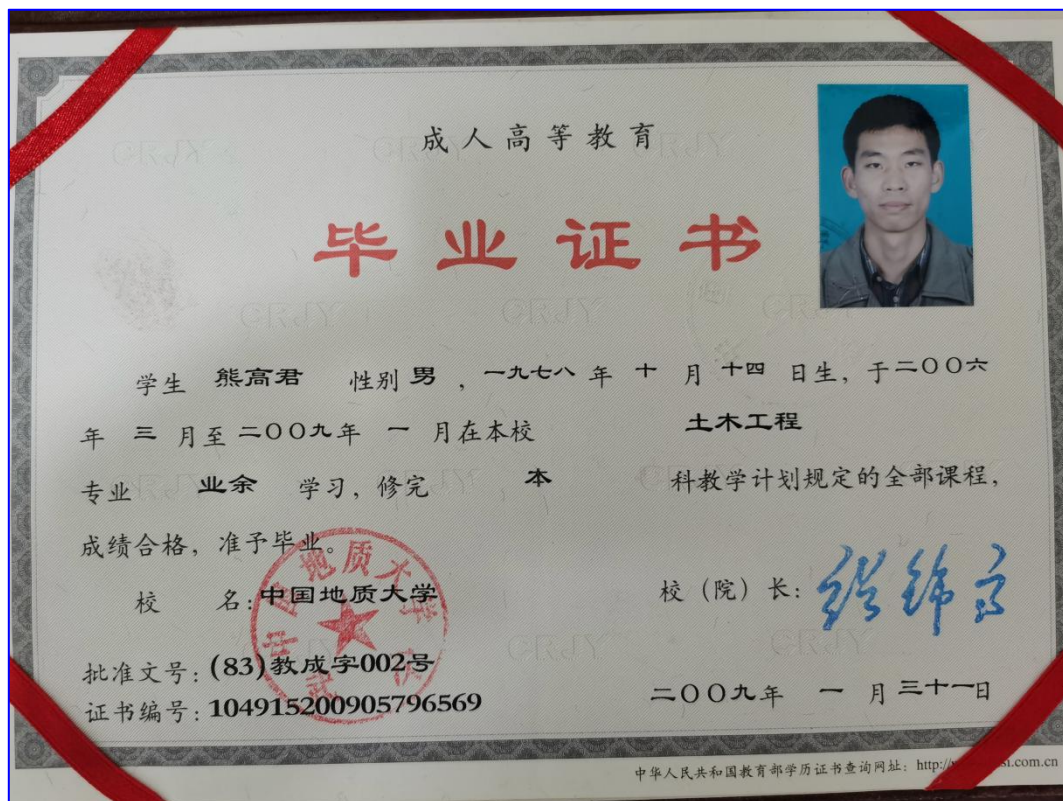 成人高等教育
毕业证书
学生 熊高君 性别 男 ，一九七八 年 十 月 十四 日生，于二〇〇六
年 三 月至 二〇〇九年 一 月在本校 土木工程
专业 业余 学习，修完 本 科教学计划规定的全部课程，
成绩合格，准予毕业。
校 名：中国地质大学
校（院）长：
批准文号：(83)教成字002号
证书编号：104915200905796569
二〇〇九年 一 月 三十一日
中华人民共和国教育部学历证书查询网址：http://
si.com.cn
中国地质大学
武汉
CRJY
CRJY
CRJY
CRJY
CRJY
CRJY
CRJY
CRJY